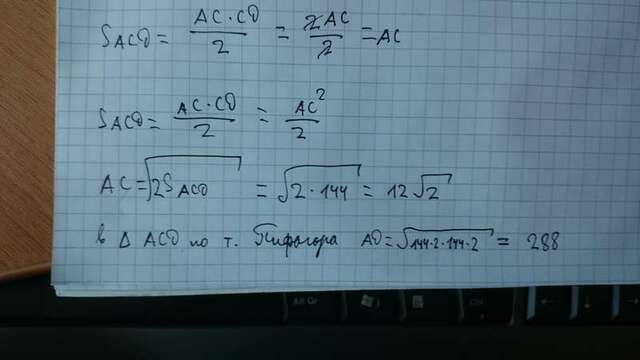 S_ACD = AC·CD/2 = 2AC/2 = AC
S_ACD = AC·CD/2 = AC²/2
AC = √2S_ACD = √2·144 = 12√2
в Δ ACD по т. Пифагора AD = √144·2·144·2 = 288
Alt Gr
Ctrl